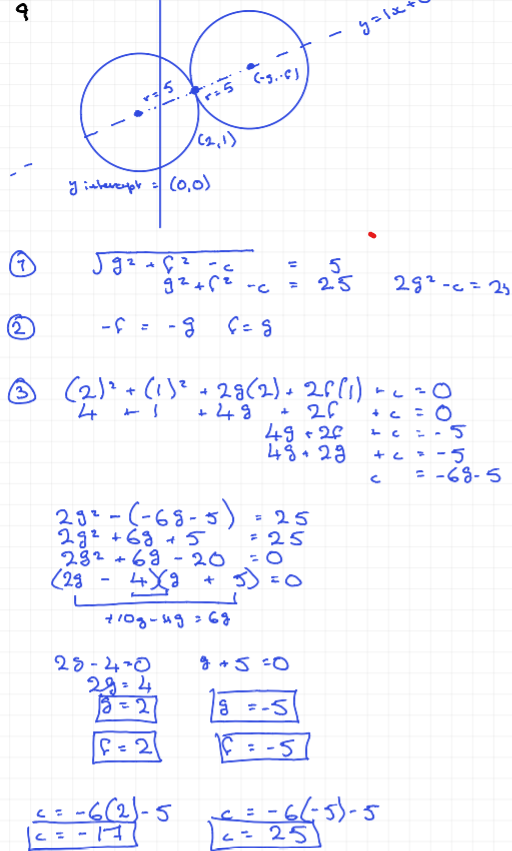 9
y = 1x + 0
r = 5
r = 5
(-g, -f)
(2, 1)
y intercept = (0,0)
① √g² + f² - c = 5
g² + f² - c = 25 2g² - c = 25
② -f = -g f = g
③ (2)² + (1)² + 2g(2) + 2f(1) + c = 0
4 + 1 + 4g + 2f + c = 0
4g + 2f + c = -5
4g + 2g + c = -5
c = -6g - 5
2g² - (-6g - 5) = 25
2g² + 6g + 5 = 25
2g² + 6g - 20 = 0
(2g - 4)(g + 5) = 0
+10g - 4g = 6g
2g - 4 = 0 g + 5 = 0
2g = 4
g = 2 g = -5
f = 2 f = -5
c = -6(2) - 5 c = -6(-5) - 5
c = -17 c = 25